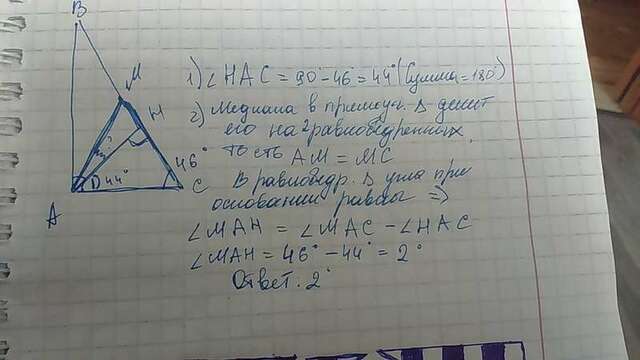 B
M
H
?
46°
D 44°
C
A
1) ∠HAC = 90°-46°=44° (Сумма=180°)
2) Медиана в прямоуг. Δ делит
его на 2 равнобедренных,
то есть AM = MC
В равнобедр. Δ углы при
основании равны =>
∠MAH = ∠MAC - ∠HAC
∠MAH = 46° - 44° = 2°
Ответ. 2°